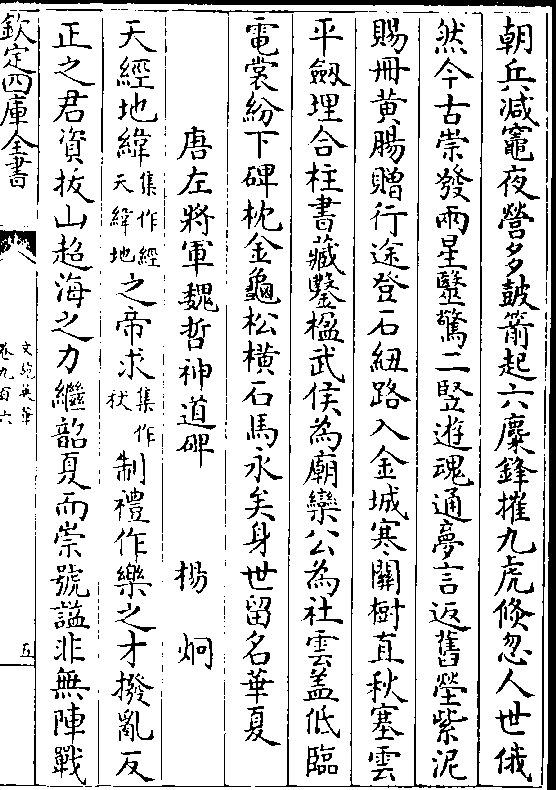 朝兵減竈夜營多鼓箭起六麋鋒摧九虎倐忽人世俄
然今古崇發兩星豎驚二竪遊魂通夢言返舊塋紫泥
賜冊黃腸贈行途登石紐路入金城寒關樹直秋塞雲
平劔埋合柱書藏鑿楹武侯為廟欒公為社雲蓋低臨
電裳紛下碑枕金龜松橫石馬永矣身世留名華夏
唐左將軍魏哲神道碑 楊烱
天經地緯集作經天緯地之帝求集作秋制禮作樂之才撥亂反
正之君資拔山超海之力繼韶夏而崇號諡非無陣戰
欽定四庫全書
文苑英華
卷九百六
五